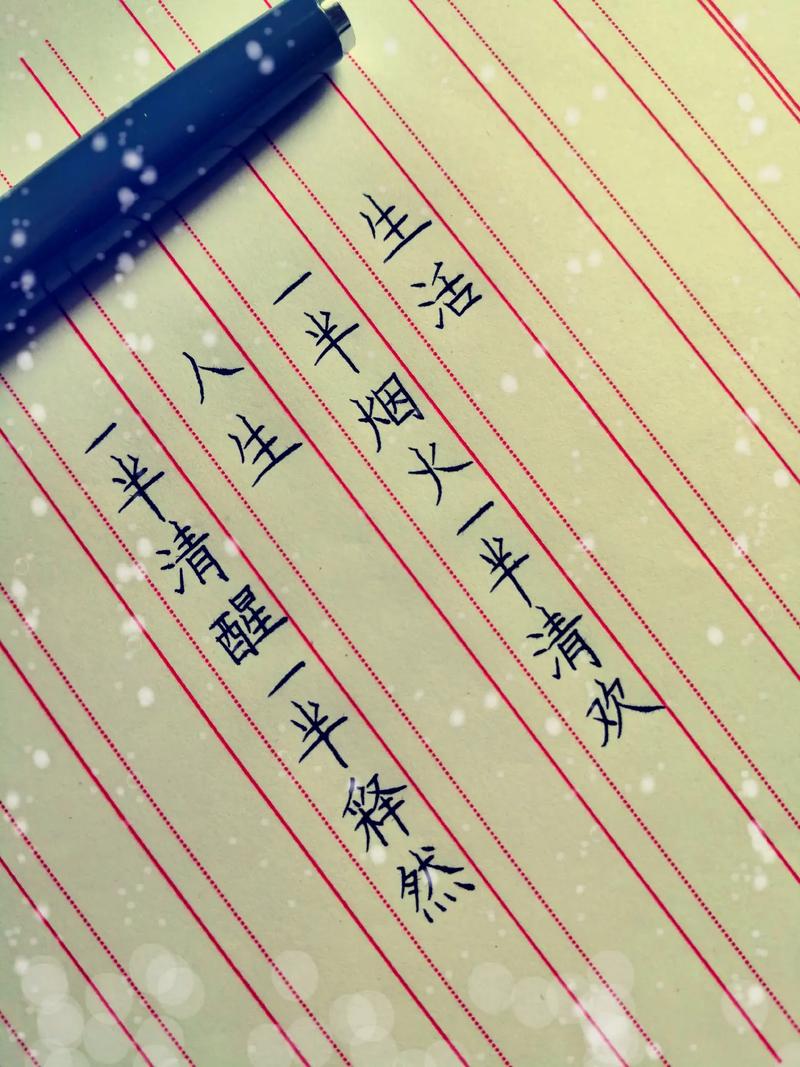 生活
一半烟火一半清欢
人生
一半清醒一半释然